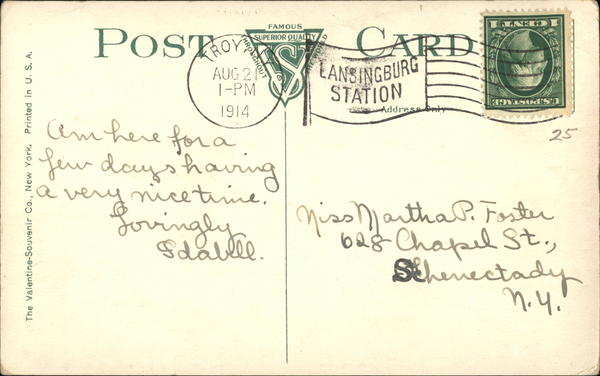 POST CARD
FAMOUS
SUPERIOR QUALITY
THROUGHOUT
TROY
AUG 21
1-PM
1914
LANSINGBURG
STATION
Address Only
25
Am here for a
few days having
a very nice time.
Lovingly
Idabell.
Miss Martha P. Foster
628 Chapel St.,
Schenectady
N.Y.
The Valentine-Souvenir Co., New York. Printed in U.S.A.